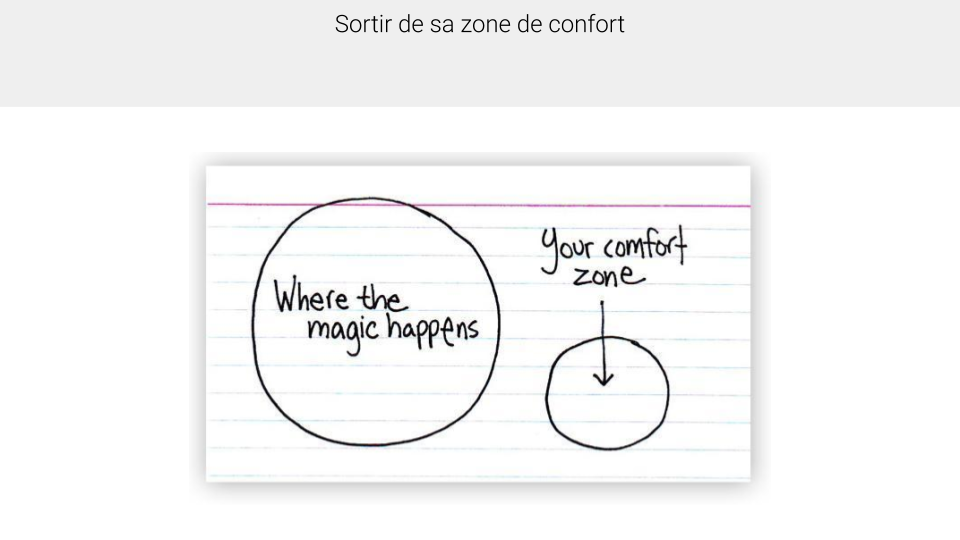 Sortir de sa zone de confort
Where the
magic happens
Your comfort
zone